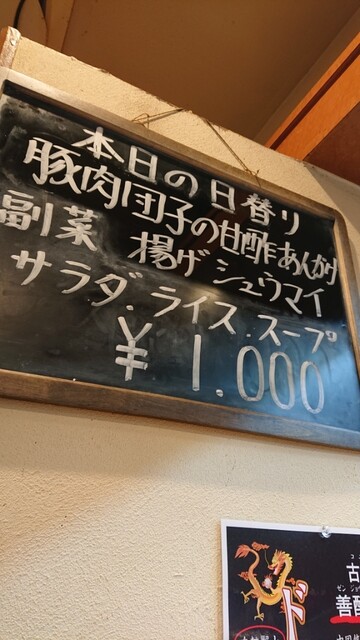 本日の日替り
豚肉団子の甘酢あんかけ
副菜 揚げシュウマイ
サラダ.ライス.スープ
¥1.000
ド
古
善酉